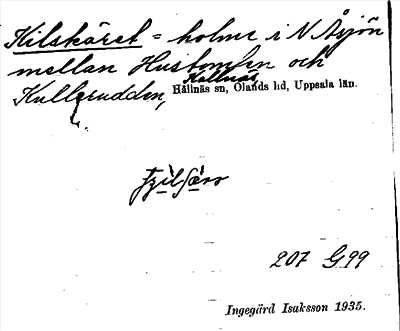 Kilskäret = holme i N Åsjön
mellan Hustomten och
Kallnäs
Kullerudden, Hållnäs sn, Olands hd, Uppsala län.
207 G 99
Ingegärd Isaksson 1935.